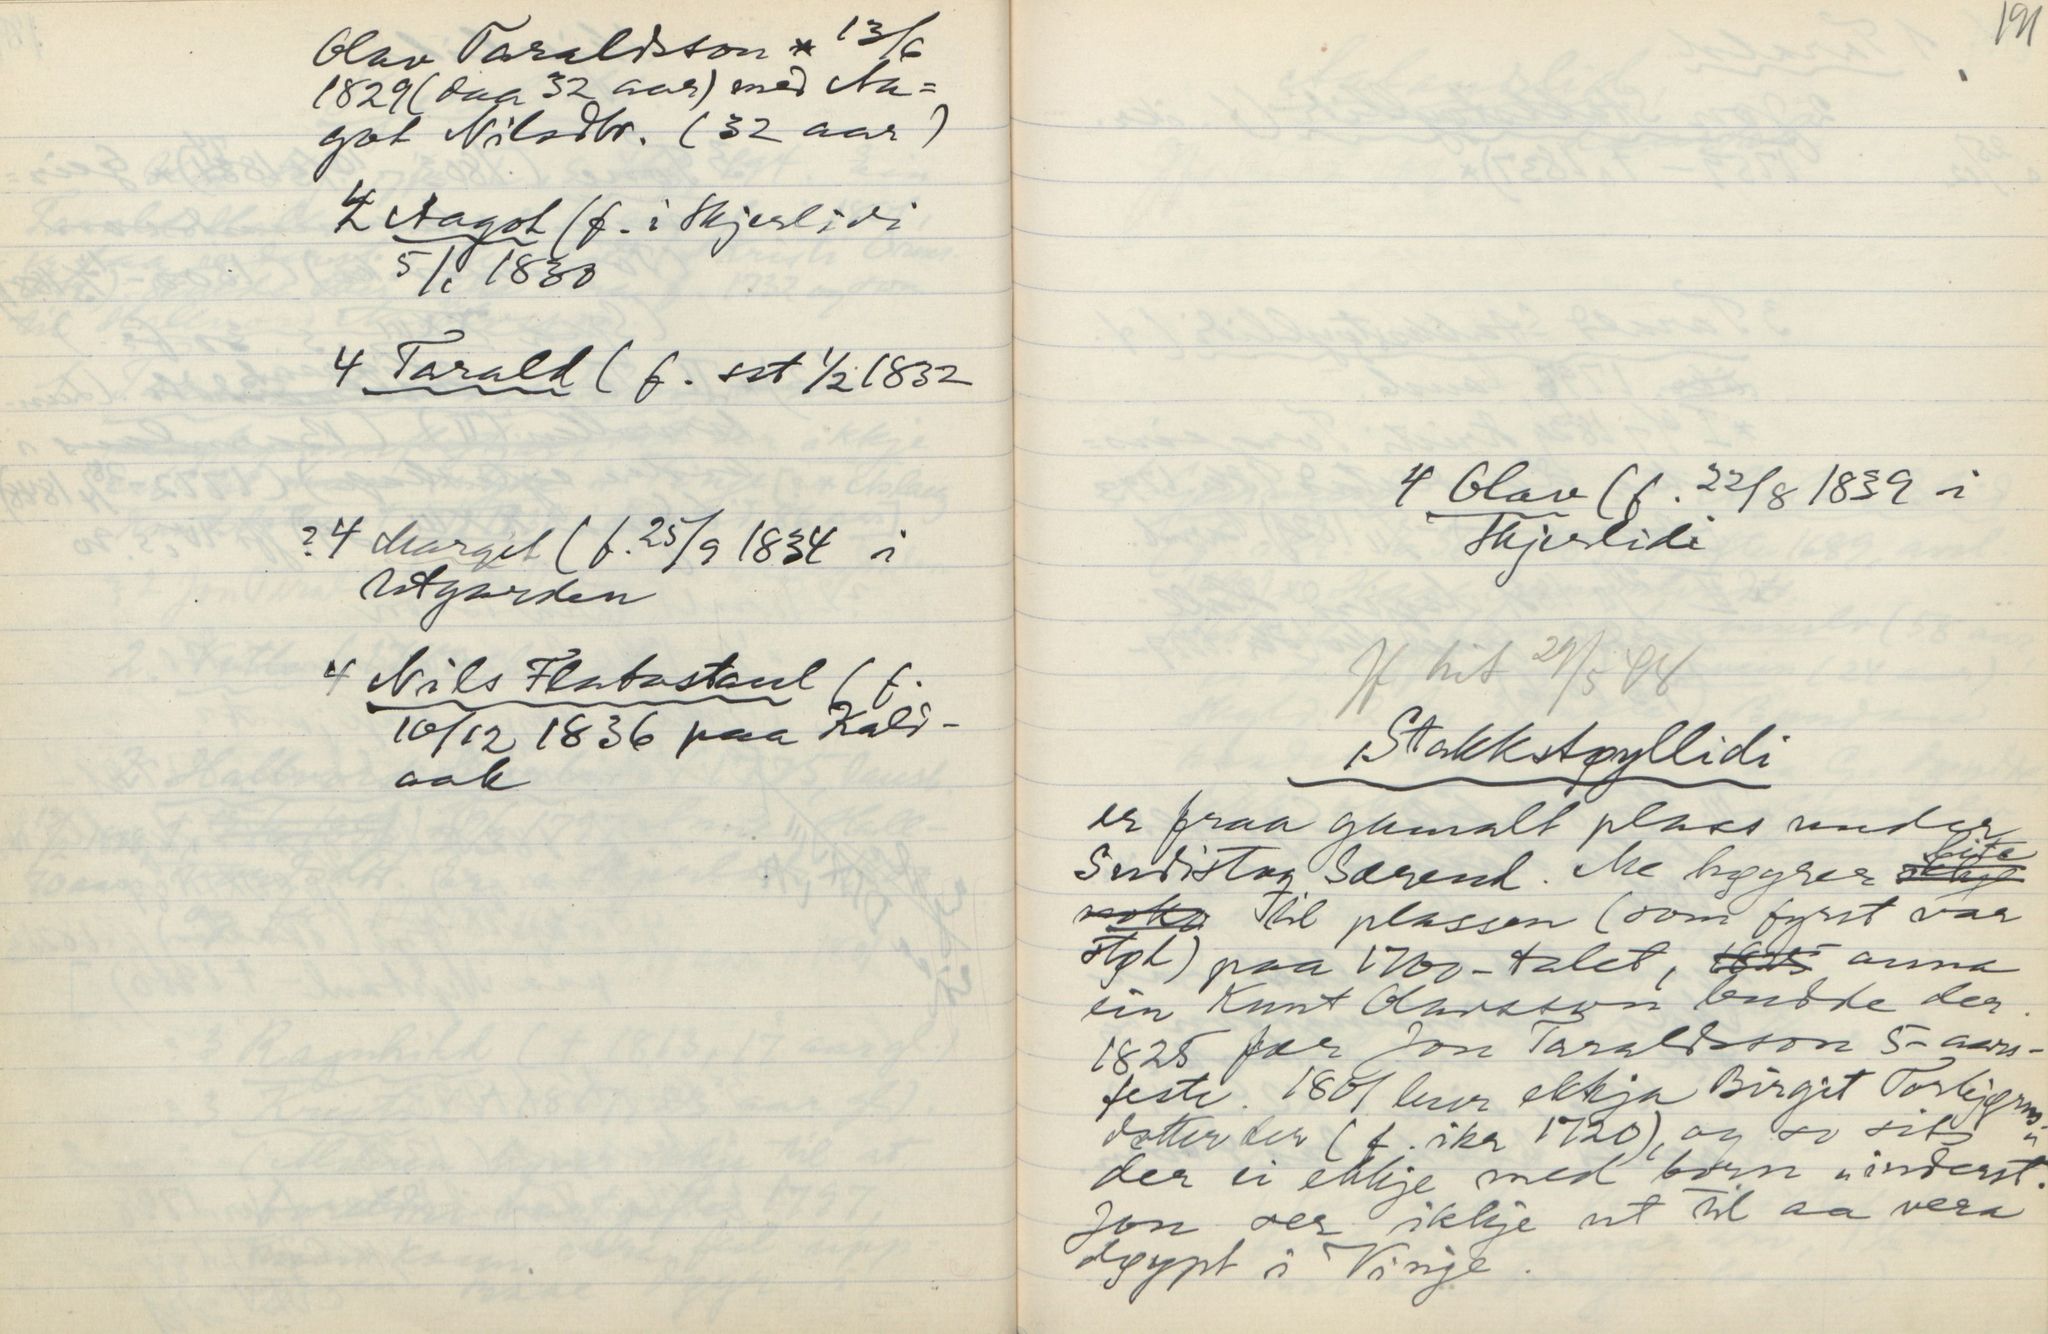 Olav Taraldsson * 13/6
1829 (daa 32 aar) med Aa=
got Nilsdtr. (32 aar)
4 Aagot (f. i Skjerlidi
5/1 1830
4 Tarald (f. sst 1/2 1832
? 4 Margit (f. 25/9 1834 i
Utgarden
4 Nils Flatastaul (f.
10/12 1836 paa Kald-
aak
191
4 Olav (f. 22/8 1839 i
Skjerlidi
Jf hit 29/5 48
Stakkstøyllidi
er fraa gamalt plass under
Sudistog Særend. Me høyrer lite
noko til plassen (som fyrst var
støl) paa 1700-talet, 1825 anna
ein Knut Olavsson budde der.
1825 fær Jon Taraldsson 5-aars-
feste. 1801 bur ekkja Birgit Torbjørns-
dotter der (f. ikr 1720), og so sit
der ei ekkje med born "inderst".
Jon ser ikkje ut til aa vera
døypt i Vinje.